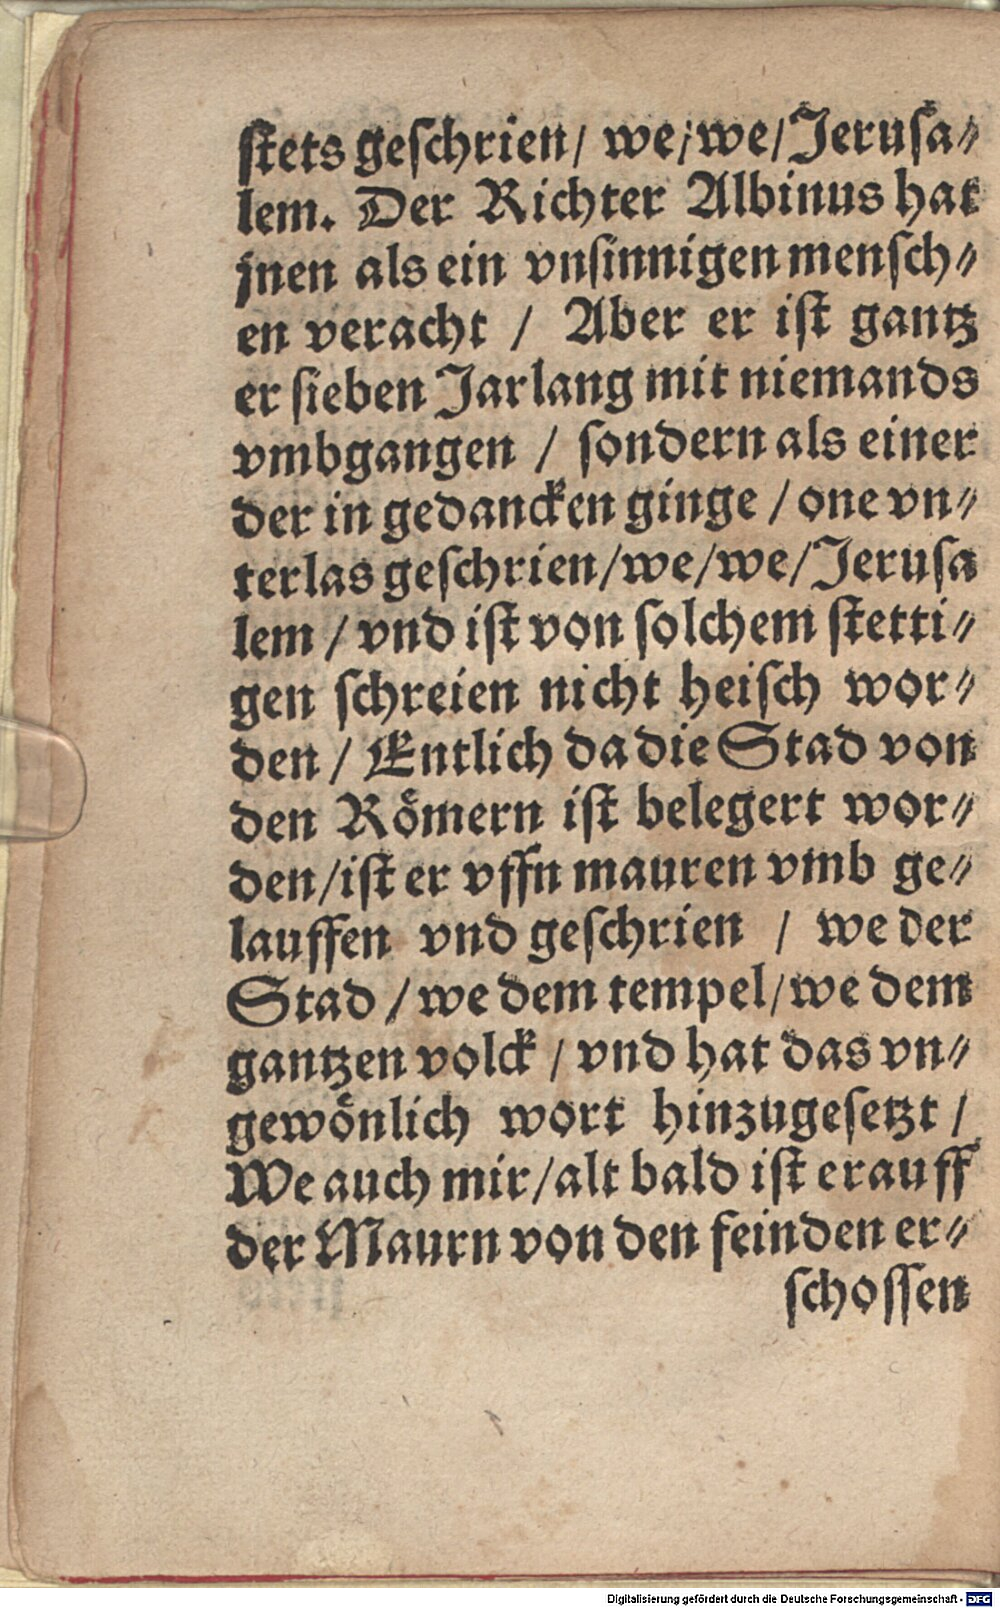 ſtets geſchrien/ we/we/Jeruſa⸗
lem. Der Richter Albinus hat
jnen als ein vnſinnigen menſch⸗
en veracht / Aber er iſt gantz
er ſieben Jar lang mit niemands
vmbgangen / ſondern als einer
der in gedancken ginge / one vn⸗
terlas geſchrien/we/we/Jeruſa
lem / vnd iſt von ſolchem ſtetti⸗
gen ſchreien nicht heiſch wor⸗
den / Entlich da die Stad von
den Römern iſt belegert wor⸗
den/iſt er vffn mauren vmb ge⸗
lauffen vnd geſchrien / we der
Stad / we dem tempel/we dem
gantzen volck / vnd hat das vn⸗
gewönlich wort hinzugeſetzt /
We auch mir/alt bald iſt er auff
der Maurn von den feinden er⸗
ſchoſſen
Digitalisierung gefördert durch die Deutsche Forschungsgemeinschaft - DFG